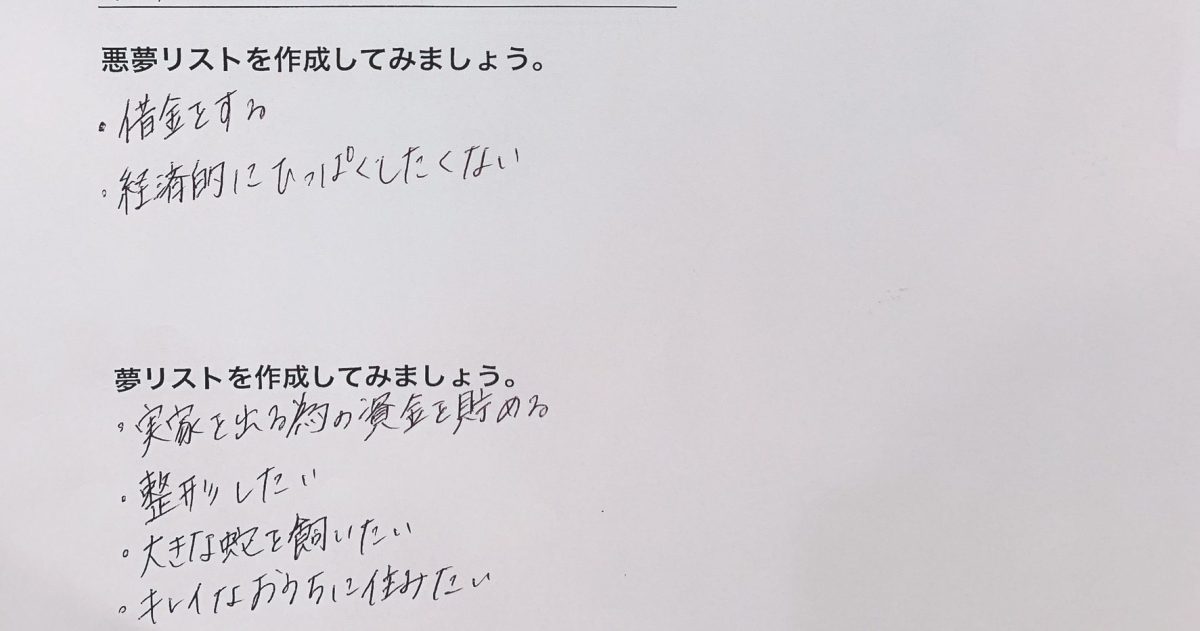 悪夢リストを作成してみましょう。
・借金をする
・経済的にひっぱくしたくない
夢リストを作成してみましょう。
・実家を出る為の資金を貯める
・整形したい
・大きな蛇を飼いたい
・キレイなおうちに住みたい